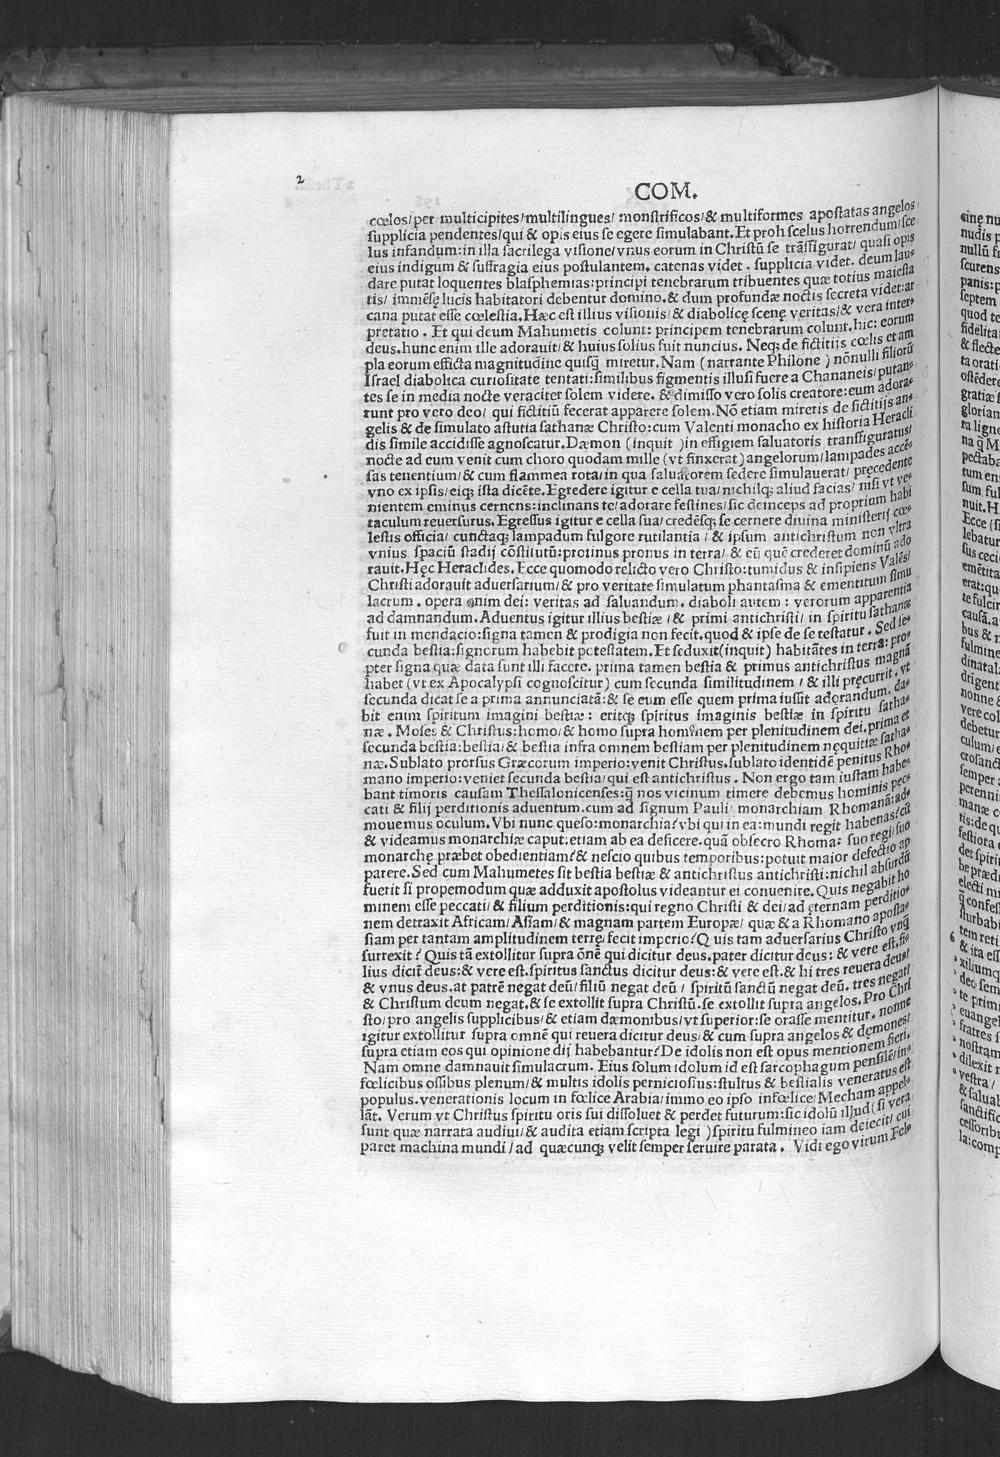 2
COM.
cœlos/per multicipites/multilingues/ monſtrificos/& multiformes apoſtatas angelos
ſupplicia pendentes/qui & opis eius ſe egere ſimulabant.Et proh ſcelus horrendum/ſce
lus infandum:in illa ſacrilega viſione/vnus eorum in Chriſtū ſe trāſſigurat/ quaſi opis
eius indigum & ſuffragia eius poſtulantem. catenas videt . ſupplicia videt. deum lau⸗
dare putat loquentes blaſphemias:principi tenebrarum tribuentes quæ totius maieſta
tis/ immēſę lucis habitatori debentur domino.& dum profundæ noctis ſecreta videt:ar
cana putat eſſe cœleſtia.Hæc eſt illius viſionis/& diabolicę ſcenę veritas/& vera inter⸗
pretatio . Et qui deum Mahumetis colunt: principem tenebrarum colunt.hic: eorum
deus.hunc enim ille adorauit/& huius ſolius fuit nuncius. Neq; de fictitijs cœlis et am
pla eorum efficta magnitudine quiſq̄ miretur. Nam (narrante Philone ) nōnulli filiorū
Iſrael diabolica curioſitate tentati:ſimilibus figmentis illuſi fuere a Chananeis/ putan⸗
tes ſe in media nocte veraciter ſolem videre. & dimiſſo vero ſolis creatore:eum adora⸗
runt pro vero deo/ qui fictitiū fecerat apparere ſolem.Nō etiam mireris de fictitijs an⸗
gelis & de ſimulato aſtutia ſathanæ Chriſto:cum Valenti monacho ex hiſtoria Heracli
dis ſimile accidiſſe agnoſcatur.Dæmon (inquit )in effigiem ſaluatoris tranſſiguratus/
nocte ad eum venit cum choro quodam mille (vt finxerat) angelorum/lampades accē⸗
ſas tenentium/& cum flammea rota/in qua ſaluatorem ſedere ſimulauerat/ pręcedente
vno ex ipſis/eiq; iſta dicēte.Egredere igitur e cella tua/nichilq; aliud facias/ niſi vt ve⸗
nientem eminus cernens:inclinans te/adorare feſtines/ſic deinceps ad proprium habi
taculum reuerſurus.Egreſſus igitur e cella ſua/credēſq; ſe cernere diuina miniſterij cœ⸗
leſtis officia/ cunctaq; lampadum fulgore rutilantia /& ipſum antichriſtum non vltra
vnius ſpaciū ſtadij cōſtitutū:protinus pronus in terra/ & eū quē crederet dominū ado
rauit.Hęc Heraclides.Ecce quomodo relicto vero Chriſto:tumidus & inſipiens Valēs/
Chriſti adorauit aduerſarium/& pro veritate ſimulatum phantaſma & ementitum ſimu
lacrum . opera enim dei: veritas ad ſaluandum. diaboli autem : verorum apparentia
ad damnandum. Aduentus igitur illius beſtiæ /& primi antichriſti/ in ſpiritu ſathanæ
fuit in mendacio:ſigna tamen & prodigia non fecit.quod & ipſe de ſe teſtatur . Sed ſe⸗
cunda beſtia:ſignorum habebit poteſtatem.Et ſeduxit(inquit) habitātes in terra: pro⸗
pter ſigna quæ data ſunt illi facere. prima tamen beſtia & primus antichriſtus magnā
habet (vt ex Apocalypſi cognoſcitur) cum ſecunda ſimilitudinem /& illi pręcurrit. vt
ſecunda dicat ſe a prima annunciatā:& ſe eum eſſe quem prima iuſſit adorandum. da⸗
bit enim ſpiritum imagini beſtiæ: eritq; ſpiritus imaginis beſtiæ in ſpiritu ſatha⸗
næ . Moſes & Chriſtus:homo/& homo ſupra hominem per plenitudinem dei.prima et
ſecunda beſtia:beſtia/& beſtia infra omnem beſtiam per plenitudinem nęquitiæ ſatha⸗
næ.Sublato prorſus Græcorum imperio:venit Chriſtus.ſublato identidē penitus Rho⸗
mano imperio:veniet ſecunda beſtia/qui eſt antichriſtus . Non ergo tam iuſtam habe⸗
bant timoris cauſam Theſſalonicenſes:q̄ nos vicinum timere debemus hominis pec⸗
cati & filij perditionis aduentum.cum ad ſignum Pauli monarchiam Rhomanā:ad⸗
mouemus oculum.Vbi nunc queſo:monarchia?vbi qui in ea:mundi regit habenas?cū
& videamus monarchiæ caput:etiam ab ea deficere.quā obſecro Rhoma: ſuo regi/ſuo
monarchę præbet obedientiam?& neſcio quibus temporibus:potuit maior defectio ap
parere.Sed cum Mahumetes ſit beſtia beſtiæ & antichriſtus antichriſti:nichil abſurdū
fuerit ſi propemodum quæ adduxit apoſtolus videantur ei conuenire. Quis negabit ho
minem eſſe peccati/& filium perditionis:qui regno Chriſti & dei/ad ęternam perditio⸗
nem detraxit Africam/Aſiam/& magnam partem Europæ/ quæ & a Rhomano apoſta⸗
ſiam per tantam amplitudinem terrę/fecit imperio?Q uis tam aduerſarius Chriſto vnq̄
ſurrexit? Quis tā extollitur ſupra ōnē qui dicitur deus.pater dicitur deus: & vere eſt.fi⸗
lius dicit deus:& vere eſt.ſpiritus ſanctus dicitur deus:& vere eſt.& hi tres reuera deus/
& vnus deus.at patrē negat deū/filiū negat deū / ſpiritū ſanctū negat deū. tres negat/
& Chriſtum deum negat.& ſe extollit ſupra Chriſtū.ſe extollit ſupra angelos.Pro Chri
ſto/pro angelis ſupplicibus/& etiam dæmonibus/vt ſuperior:ſe oraſſe mentitur. nonne
igitur extollitur ſupra omnē qui reuera dicitur deus/& cum ſupra angelos & dęmones/
ſupra etiam eos qui opinione dij habebantur?De idolis non eſt opus mentionem fieri.
Nam omne damnauit ſimulacrum. Eius ſolum idolum id eſt ſarcophagum penſile/in⸗
fœlicibus oſſibus plenum/& multis idolis pernicioſius:ſtultus & beſtialis veneratus eſt
populus.venerationis locum in fœlice Arabia/immo eo ipſo infœlice/Mecham appel⸗
lāt. Verum vt Chriſtus ſpiritu oris ſui diſſoluet & perdet futurum:ſic idolū illud(ſi vera
ſunt quæ narrata audiui/& audita etiam ſcripta legi )ſpiritu fulmineo iam deiecit/ cui
paret machina mundi/ad quæcunq; velit ſemper ſeruire parata . Vidi ego virum Fel⸗